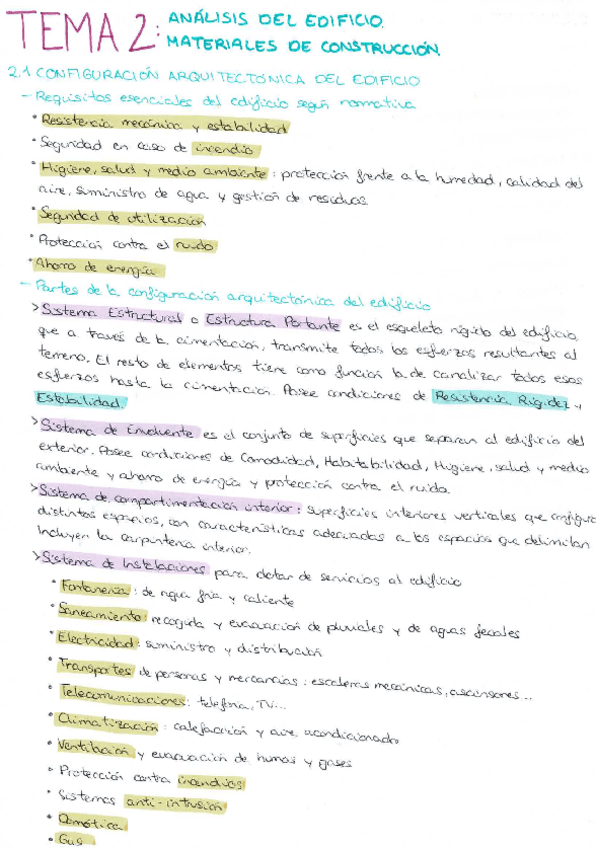 TEMA 2: ANÁLISIS DEL EDIFICIO.
MATERIALES DE CONSTRUCCIÓN.
2.1 CONFIGURACIÓN ARQUITECTÓNICA DEL EDIFICIO
- Requisitos esenciales del edificio según normativa
• Resistencia mecánica y estabilidad
• Seguridad en caso de incendio
• Higiene, salud y medio ambiente: protección frente a la humedad, calidad del
aire, suministro de agua y gestión de residuos.
• Seguridad de utilización
• Protección contra el ruido
• Ahorro de energía
- Partes de la configuración arquitectónica del edificio
> Sistema Estructural o Estructura Portante es el esqueleto rígido del edificio,
que a través de la cimentación, transmite todos los esfuerzos resultantes al
terreno. El resto de elementos tiene como función la de canalizar todos esos
esfuerzos hasta la cimentación. Posee condiciones de Resistencia, Rigidez y
Estabilidad.
> Sistema de Envolvente es el conjunto de superficies que separan al edificio del
exterior. Posee condiciones de Comodidad, Habitabilidad, Higiene, salud y medio
ambiente y ahorro de energía y protección contra el ruido.
> Sistema de compartimentación interior: superficies interiores verticales que configura
distintos espacios, con características adecuadas a los espacios que delimitan
Incluyen la carpintería interior.
> Sistema de Instalaciones para dotar de servicios al edificio
• Fontanería: de agua fría y caliente
• Saneamiento: recogida y evacuación de pluviales y de aguas fecales
• Electricidad: suministro y distribución
• Transportes de personas y mercancías: escaleras mecánicas, ascensores...
• Telecomunicaciones: telefonía, TV...
• Climatización: calefacción y aire acondicionado
• Ventilación y evacuación de humos y gases
• Protección contra incendios
• Sistemas anti-intrusión
• Domótica
• Gas